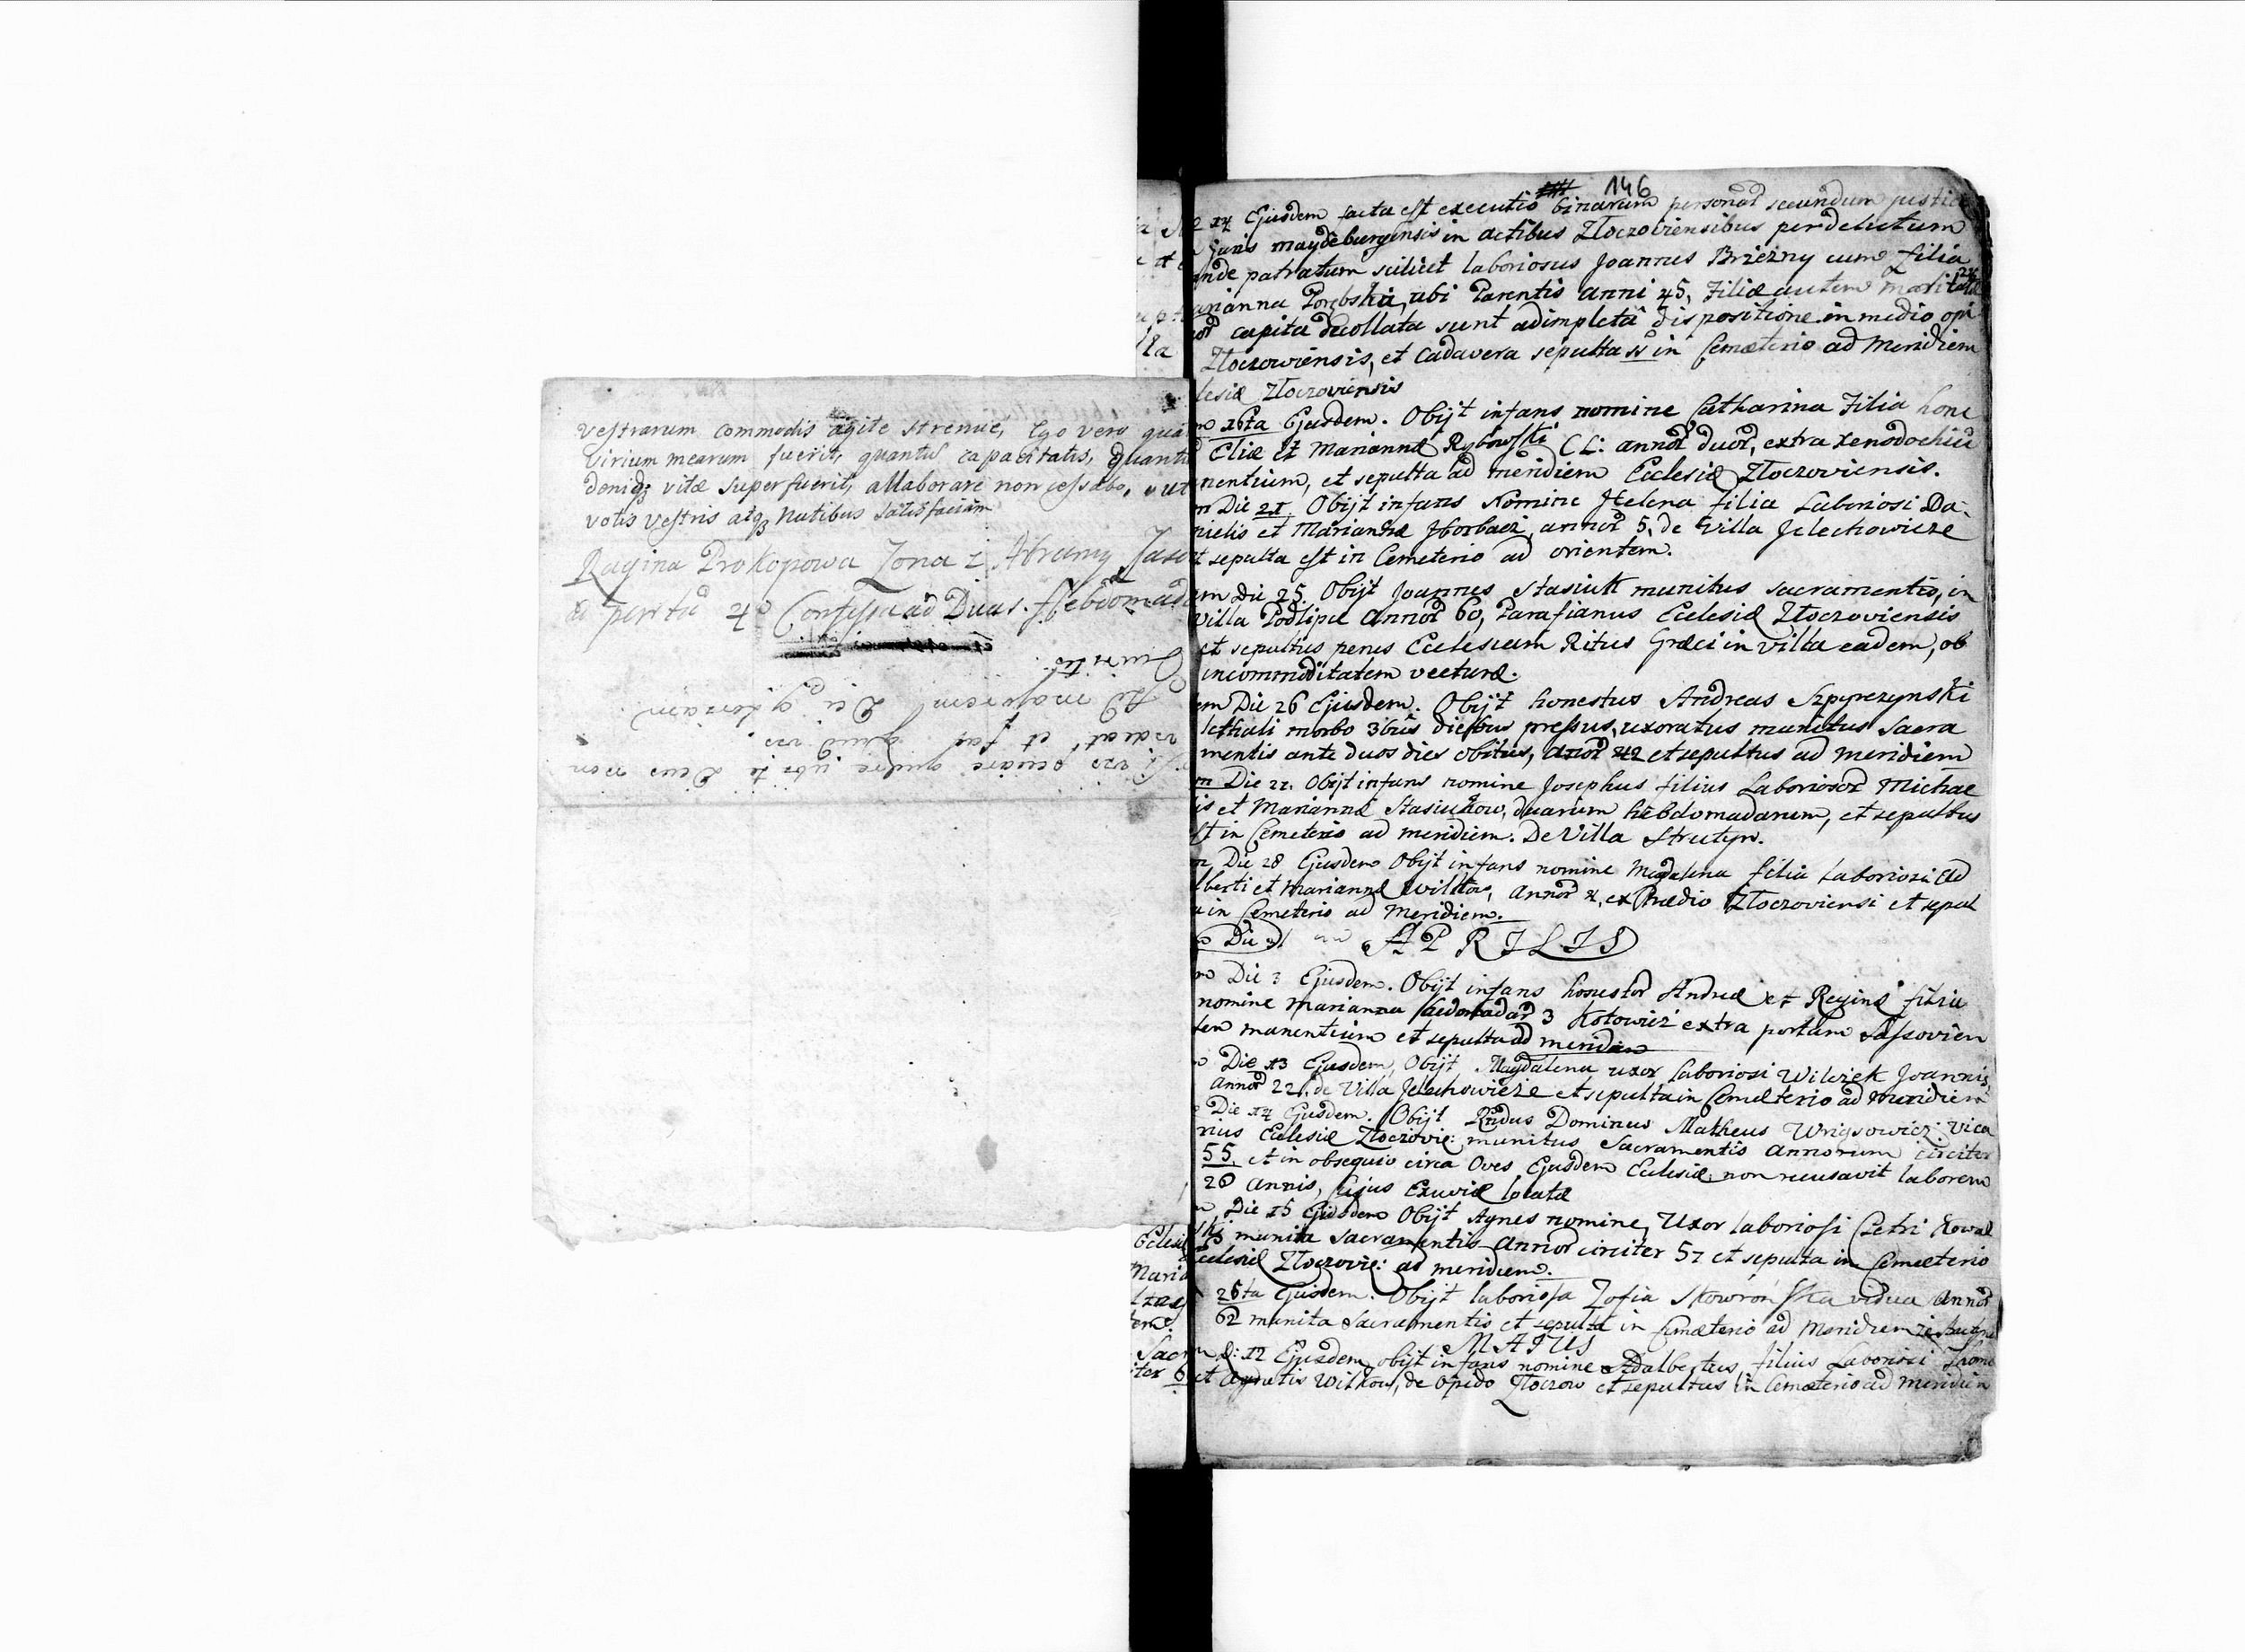 vestrarum commodis agite strenue, Ego vero qua
virium mearum fuerit, quantul capacitatis, quantu
deniqz vitæ superfuerit, allaborare non cessabo, ut
votis vestris atqz nutibus satisfaciam
Regina Prokopowa Zona z Abramy
Confessa ad Duas Hebdomada
Ad majorem Dei gloriam
146
14 Ejusdem facta est executio binarum personar secundum justi
Juris maydeburgensis in actibus Złoczoviensibus per delictum
patratum scilicet laboriosus Joannes Brzezny cum filia
arianna Porębska, ubi Parentis anni 45, Filiæ autem marita
capita decollata sunt adimpleta dispositione in medio opi
Złoczowiensis, et cadavera sepulta st in Cemæterio ad Meridiem
lesiæ Złoczoviensis
16ta Ejusdem. Obijt infans nomine Catharina Filia hone
Eliæ et Mariannæ Rybowski CL: annor duor, extra xenodochiu
nentium, et sepulta ad meridiem Ecclesiæ Złoczoviensis.
Die 21. Obijt infans Nomine Helena filia Laboriosi Da
nielis et Mariannæ Horbacz, annor 5, de Villa Jelechowicze
t sepulta est in Cemeterio ad orientem.
em Die 25. Obijt Joannes Stasiuk munitus sacramentis, in
villa Podlipce annor 60, Parafianus Ecclesiæ Złoczoviensis
et sepultus penes Ecclesiam Ritus Græci in villa eadem, ob
incommoditatem vecturæ.
em Die 26 Ejusdem. Obijt honestus Andreas Szpyrczynski
lethali morbo 3bus diebus pressus, uxoratus munitus Sacra
mentis ante duos dies obitus, annor 42 et sepultus ad meridiem
m Die 22. Obijt infans nomine Josephus filius Laboriosor Michae
is et Mariannæ Stasiukow, duarum hebdomadarum, et sepultus
st in Cemeterio ad meridiem. De Villa Strutyn.
Die 28 Ejusdem Obijt infans nomine Magdalena filia Laboriosi Ad
lberti et Mariannæ Wilkow, annor 4, ex Prædio Złoczoviensi et sepul
in Cemeterio ad Meridiem.
Die
APRILIS
Die 3 Ejusdem. Obijt infans honestor Andreæ et Reginæ filia
nomine Marianna 3 Kotowicz extra portam Sassovien
sem manentium et sepulta ad meridiem
Die 13 Ejusdem, Obijt Magdalena uxor laboriosi Wilczek Joannis,
annor 22, de Villa Jelechowicze et sepulta in Cemeterio ad meridiem
Die 14 Ejusdem. Obijt Rndus Dominus Matheus Wrigsowicz Vica
rius Ecclesiæ Złoczovie: munitus Sacramentis annorum circiter
55, et in obsequio circa Oves Ejusdem Ecclesiæ, non recusavit laborem
26 annis, Cujus Exuviæ locatæ
Die 15 Ejusdem Obijt Agnes nomine, Uxor laboriosi Petri Kowal
ski munita Sacramentis annor circiter 57 et sepulta in Cemæterio
cclesiæ Złoczovie: ad meridiem.
26ta Ejusdem. Obijt laboriosa Zofia Skowrońska vidua annor
62 munita Sacramentis et sepulta in Cemæterio ad Meridiem
MAJUS
d: 12 Ejusdem obijt infans nomine Adalbertus, filius Laboriosi
et Agnetis Wilkow, de Opido Złoczow et sepultus in Cemeterio ad meridiem